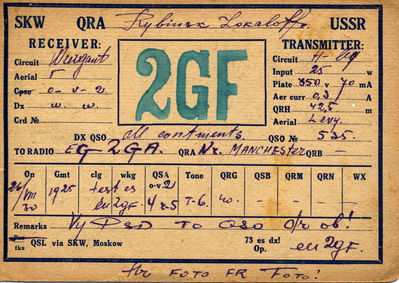 SKW QRA Rybinsk USSR
RECEIVER: TRANSMITTER:
2GF
Circuit
Aerial Γ
o-v-2
Dx w. w.
Crd №
Circuit H-
Input 25 w
Plate 350 v 70 mA
Aer curr 0,3 A
QRH 42,5 m
Aerial Levy.
DX QSO all continents. QSO № 535.
TO RADIO EG-2GA. QRA Nr. MANCHESTER QRB –
On Gmt clg wkg QSA Tone QRG QSB QRM QRN WX
26/VIII 30 1925 test es eu2gf. o-v-2 4 r.5 T-6. 40 – – –
Remarks Vy PSD TO QSO dr ob!
Pse tks QSL via SKW, Moskow 73 es dx! Op. eu2gf.
Hr FOTO FR FOTO!